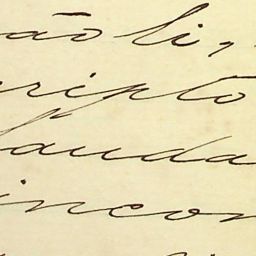 ão li,
ripto
lauda
incon